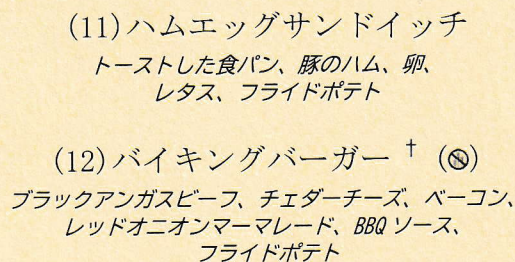 (11)ハムエッグサンドイッチ
トーストした食パン、豚のハム、卵、
レタス、フライドポテト
(12)バイキングバーガー † (🚫)
ブラックアンガスビーフ、チェダーチーズ、ベーコン、
レッドオニオンマーマレード、BBQ ソース、
フライドポテト